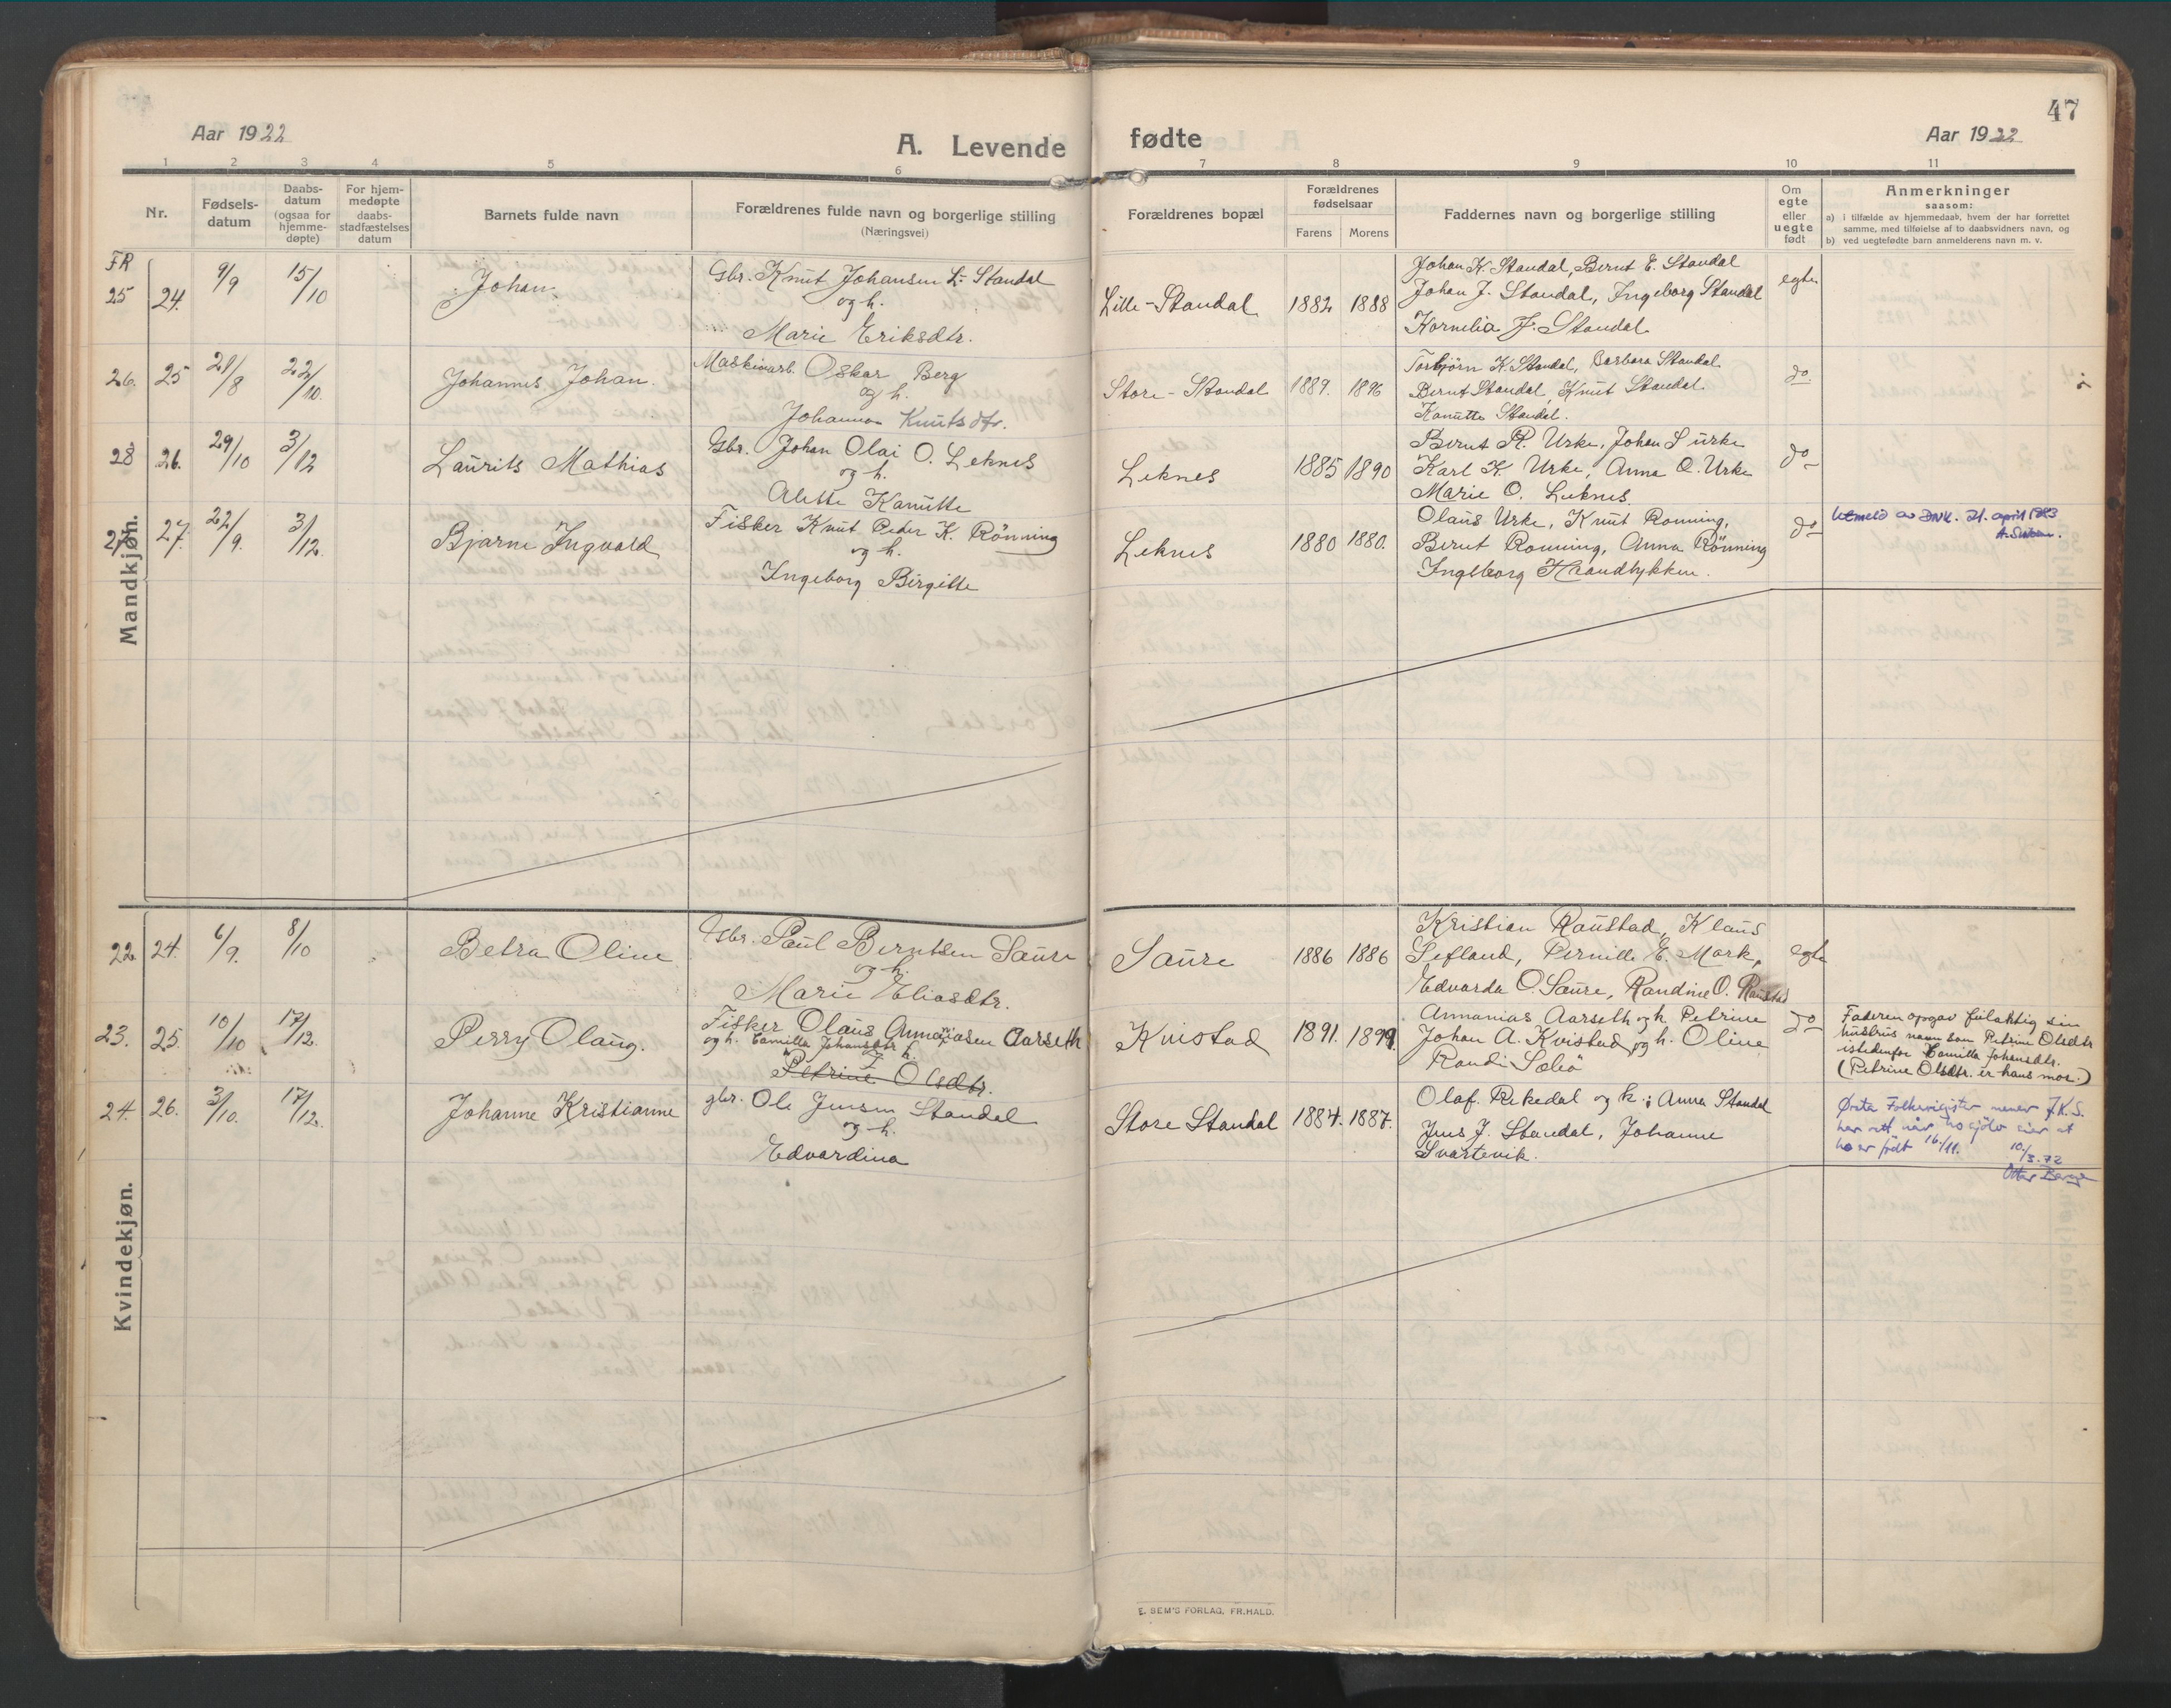 47
Aar 1922
A. Levende fødte
Aar 1922
1 2 3 4 5 6 7 8 9 10 11
Nr.
Fødsels-
datum
Daabs-
datum
(ogsaa for
hjemme-
døpte)
For hjem-
medøpte
daabs-
stadfæstelses
datum
Barnets fulde navn
Forældrenes fulde navn og borgerlige stilling
(Næringsvei)
Forældrenes bopæl
Forældrenes
fødselsaar
Farens Morens
Faddernes navn og borgerlige stilling
Om
egte
eller
uegte
født
Anmerkninger
saasom:
a) i tilfælde av hjemmedaab, hvem der har forrettet
samme, med tilføielse af to daabsvidners navn, og
b) ved uegtefødte barn anmelderens navn m. v.
Mandkjøn.
FR
25 24. 9/9 15/10 Johan. Gbr. Knut Johansen L. Standal
og h.
Marie Eriksdtr.
Lille-Standal 1882 1888
Johan K. Standal, Bernt E. Standal
Johan J. Standal, Ingeborg Standal
Kornelia J. Standal
egte
26. 25 21/8 22/10. Johannes Johan. Maskinarb. Oskar Berg
og h.
Johanna Knutsdtr.
Store-Standal 1889. 1896
Torbjørn K. Standal, Barbara Standal
Bernt Standal, Knut Standal
Kanutte Standal.
do.
28 26. 29/10 3/12 Laurits Mathias Gbr. Johan Olai O. Leknes
og h.
Alette Kanutte
Leknes 1885 1890
Bernt R. Urke, Johan S Urke
Karl K. Urke, Anna O. Urke
Marie O. Leknes
do
27 27. 22/9. 3/12. Bjarne Ingvald Fisker Knut Peder K. Rönning
og h.
Ingeborg Birgitte
Leknes 1880 1880.
Olaus Urke, Knut Ronning,
Bernt Ronning, Anna Rönning
Ingeborg
do
Utmeld av DNK. 21. april 1983
Kvindekjøn.
22. 24. 6/9. 8/10 Betra Oline Gbr. Paul Berntsen Saure
og h.
Marie Eliasdtr.
Saure 1886 1886
Kristian Raustad, Klaus
Sefland, Pernille E. Mork,
Edvarda O. Saure, Randine O. Raustad
egte
23. 25. 10/10 17/12. Perry Olaug. Fisker Olaus Annaniasen Aarseth
og h. Camilla Johansdtr
Petrine Olsdtr.
Kvistad 1891. 1899.
Annanias Aarseth og h. Petrine
Johan A. Kvistad og h. Oline
Randi Solbö
do
Faderen opgav feilaktig sin
hustrus navn som Petrine Olsdtr
istedenfor Camilla Johansdtr.
(Petrine Olsdtr. er hans mor.)
24. 26. 3/10. 17/12. Johanne Kristianne gbr. Ole Jensen Standal
og h.
Edvardina
Store Standal 1884. 1887.
Olaf Rekedal og h.; Anna Standal
Jens J. Standal, Johanne
Svartevik.
Ørsta Folkeregister nemner J.K.S.
har rett når ho sjølv sier at
ho er født 16/11. 10/3.72
E. SEM'S FORLAG, FR.HALD.